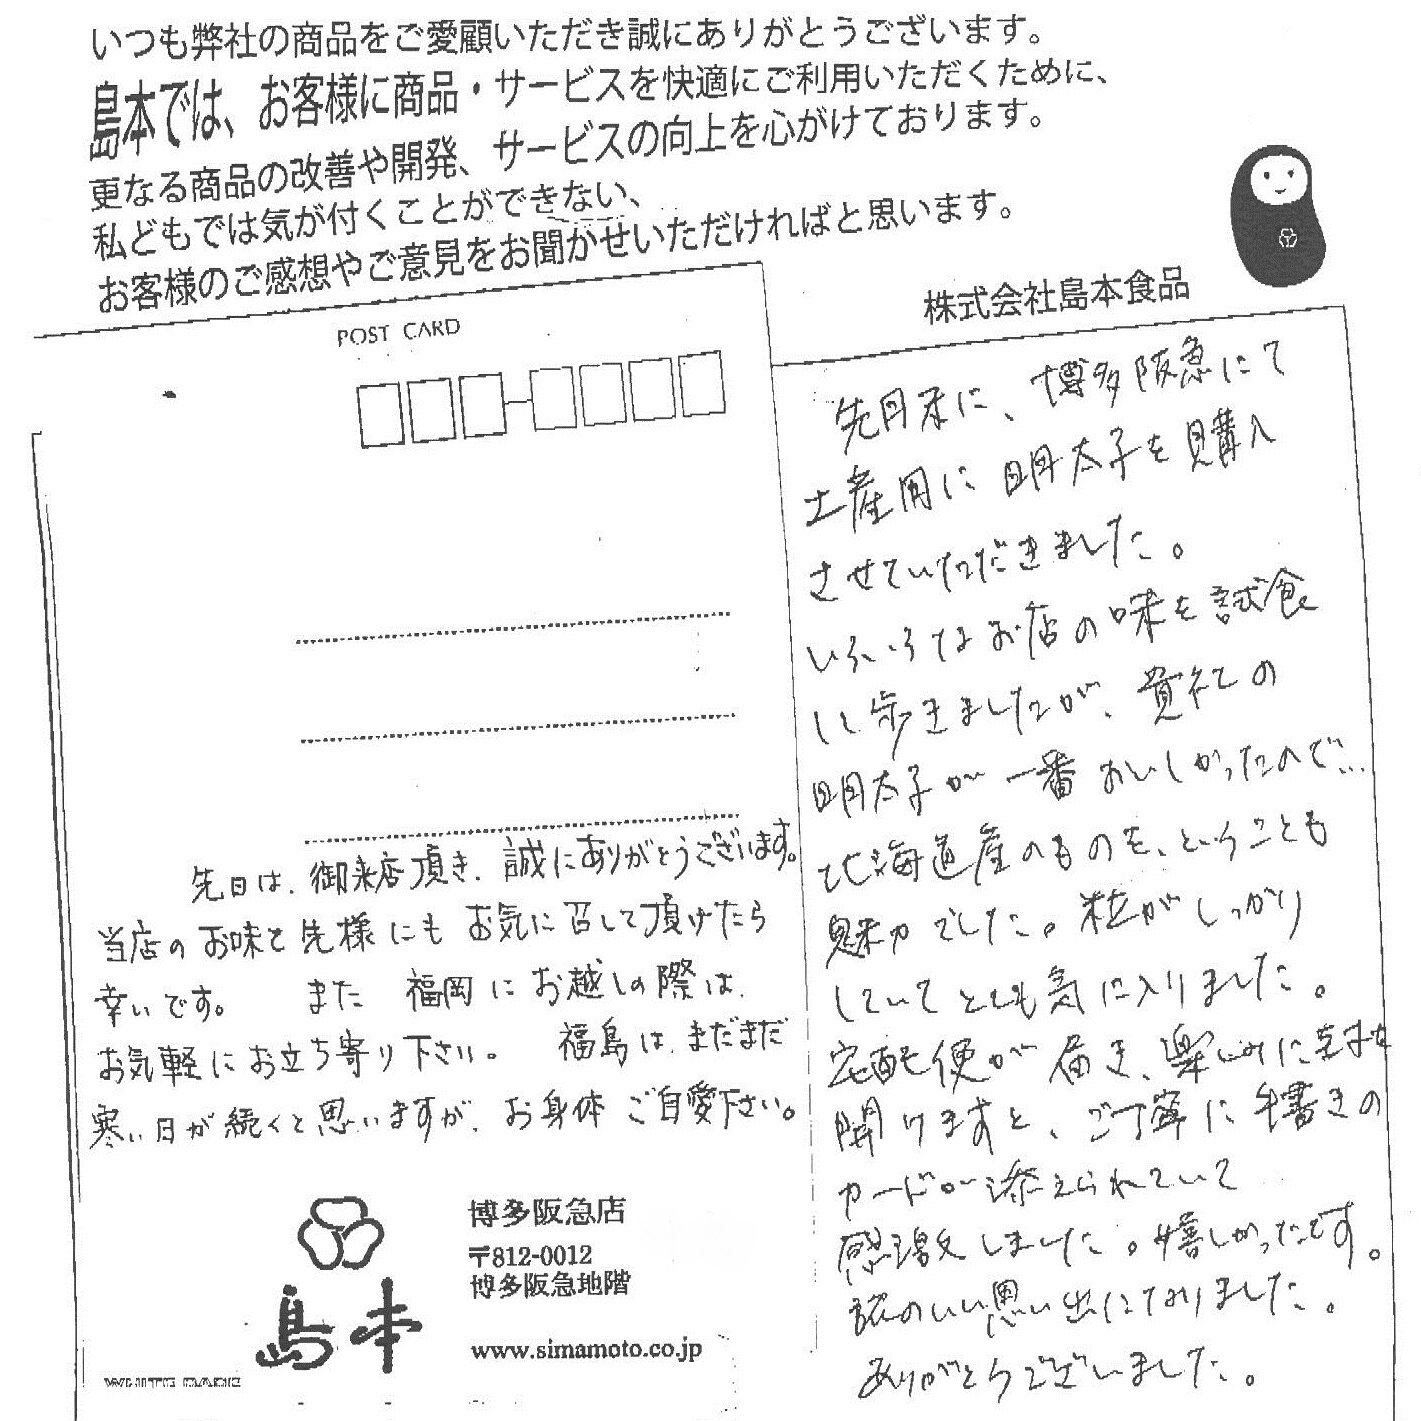 いつも弊社の商品をご愛顧いただき誠にありがとうございます。
島本では、お客様に商品・サービスを快適にご利用いただくために、
更なる商品の改善や開発、サービスの向上を心がけております。
私どもでは気が付くことができない、
お客様のご感想やご意見をお聞かせいただければと思います。
株式会社島本食品
POST CARD
先日は、御来店頂き、誠にありがとうございます。
当店のお味を先様にもお気に召して頂けたら
幸いです。 また 福岡にお越しの際は、
お気軽にお立ち寄り下さい。 福島は、まだまだ
寒い日が続くと思いますが、お身体ご自愛下さい。
島本
博多阪急店
〒812-0012
博多阪急地階
www.simamoto.co.jp
先月末に、博多阪急にて
土産用に明太子を購入
させていただきました。
いろいろなお店の味を試食
し歩きましたが、貴社の
明太子が一番おいしかったので…
北海道産のものを、ということも
魅力でした。粒がしっかり
していてとても気に入りました。
宅配便が届き、楽しみに
開けますと、ご丁寧に手書きの
カードが添えられていて
感激しました。嬉しかったです。
旅のいい思い出になりました。
ありがとうございました。